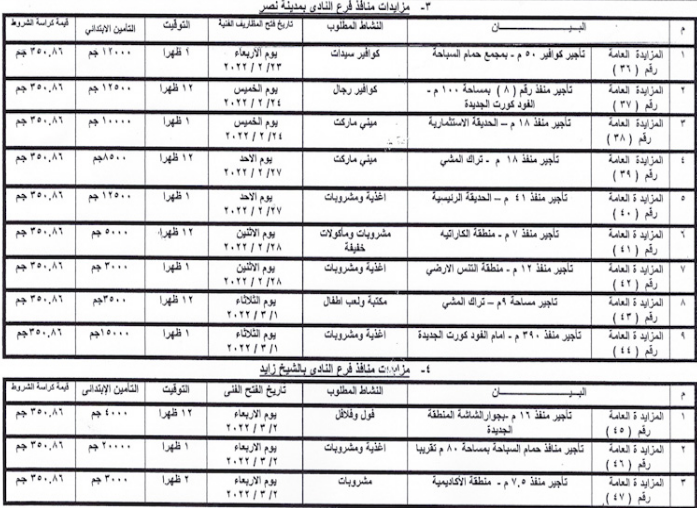 ٣- مزايدات منافذ فرع النادى بمدينة نصر
م | البيــــــان | النشاط المطلوب | تاريخ فتح المظاريف الفنية | التوقيت | التأمين الابتدائي | قيمة كراسة الشروط
١ | المزايدة العامة رقم ( ٣٦ ) | تأجير كوافير ٥٠ م - بمجمع حمام السباحة | كوافير سيدات | يوم الاربعاء ٢٣/ ٢ / ٢٠٢٢ | ١ ظهرا | ١٢٠٠٠ جم | ٣٥٠,٨٦ جم
٢ | المزايدة العامة رقم ( ٣٧ ) | تأجير منفذ رقم ( ٨ ) بمساحة ١٠٠ م - الفود كورت الجديدة | كوافير رجال | يوم الخميس ٢٤/ ٢ / ٢٠٢٢ | ١٢ ظهرا | ١٢٥٠٠ جم | ٣٥٠,٨٦ جم
٣ | المزايدة العامة رقم ( ٣٨ ) | تأجير منفذ ١٨ م – الحديقة الاستثمارية | ميني ماركت | يوم الخميس ٢٤/ ٢ / ٢٠٢٢ | ١ ظهرا | ١٠٠٠٠ جم | ٣٥٠,٨٦ جم
٤ | المزايدة العامة رقم ( ٣٩ ) | تأجير منفذ ١٨ م - تراك المشي | ميني ماركت | يوم الاحد ٢٧/ ٢ / ٢٠٢٢ | ١٢ ظهرا | ٨٥٠٠جم | ٣٥٠,٨٦ جم
٥ | المزايدة العامة رقم ( ٤٠ ) | تأجير منفذ ٤١ م – الحديقة الرئيسية | اغذية ومشروبات | يوم الاحد ٢٧/ ٢ / ٢٠٢٢ | ١ ظهرا | ١٢٥٠٠ جم | ٣٥٠,٨٦ جم
٦ | المزايدة العامة رقم ( ٤١ ) | تأجير منفذ ٧ م - منطقة الكاراتيه | مشروبات ومأكولات خفيفة | يوم الاثنين ٢٨/ ٢ / ٢٠٢٢ | ١٢ ظهرا | ٥٠٠٠ جم | ٣٥٠,٨٦ جم
٧ | المزايدة العامة رقم ( ٤٢ ) | تأجير منفذ ١٢ م - منطقة التنس الارضي | اغذية ومشروبات | يوم الاثنين ٢٨/ ٢ / ٢٠٢٢ | ١ ظهرا | ٣٠٠٠ جم | ٣٥٠,٨٦ جم
٨ | المزايدة العامة رقم ( ٤٣ ) | تأجير مساحة ٩م – تراك المشي | مكتبة ولعب اطفال | يوم الثلاثاء ١/ ٣ / ٢٠٢٢ | ١٢ ظهرا | ٣٥٠٠جم | ٣٥٠,٨٦ جم
٩ | المزايدة العامة رقم ( ٤٤ ) | تأجير منفذ ٣٩٠ م - امام الفود كورت الجديدة | اغذية ومشروبات | يوم الثلاثاء ١/ ٣ / ٢٠٢٢ | ١ ظهرا | ١٥٠٠٠جم | ٣٥٠,٨٦ جم
٤- مزايدات منافذ فرع النادى بالشيخ زايد
م | البيــــــان | النشاط المطلوب | تاريخ الفتح الفنى | التوقيت | التأمين الإبتدائى | قيمة كراسة الشروط
١ | المزايدة العامة رقم ( ٤٥ ) | تأجير منفذ ١٦ م -بجوارالشاشة المنطقة الجديدة | فول وفلافل | يوم الاربعاء ٢/ ٣ / ٢٠٢٢ | ١٢ ظهرا | ٤٠٠٠ جم | ٣٥٠,٨٦ جم
٢ | المزايدة العامة رقم ( ٤٦ ) | تأجير منافذ حمام السباحة بمساحة ٨٠ م تقريبا | اغذية ومشروبات | يوم الاربعاء ٢/ ٣ / ٢٠٢٢ | ١ ظهرا | ٢٠٠٠٠ جم | ٣٥٠,٨٦ جم
٣ | المزايدة العامة رقم ( ٤٧ ) | تأجير منفذ ٧,٥ م - منطقة الأكاديمية | مشروبات | يوم الاربعاء ٢/ ٣ / ٢٠٢٢ | ٢ ظهرا | ٣٠٠٠ جم | ٣٥٠,٨٦ جم